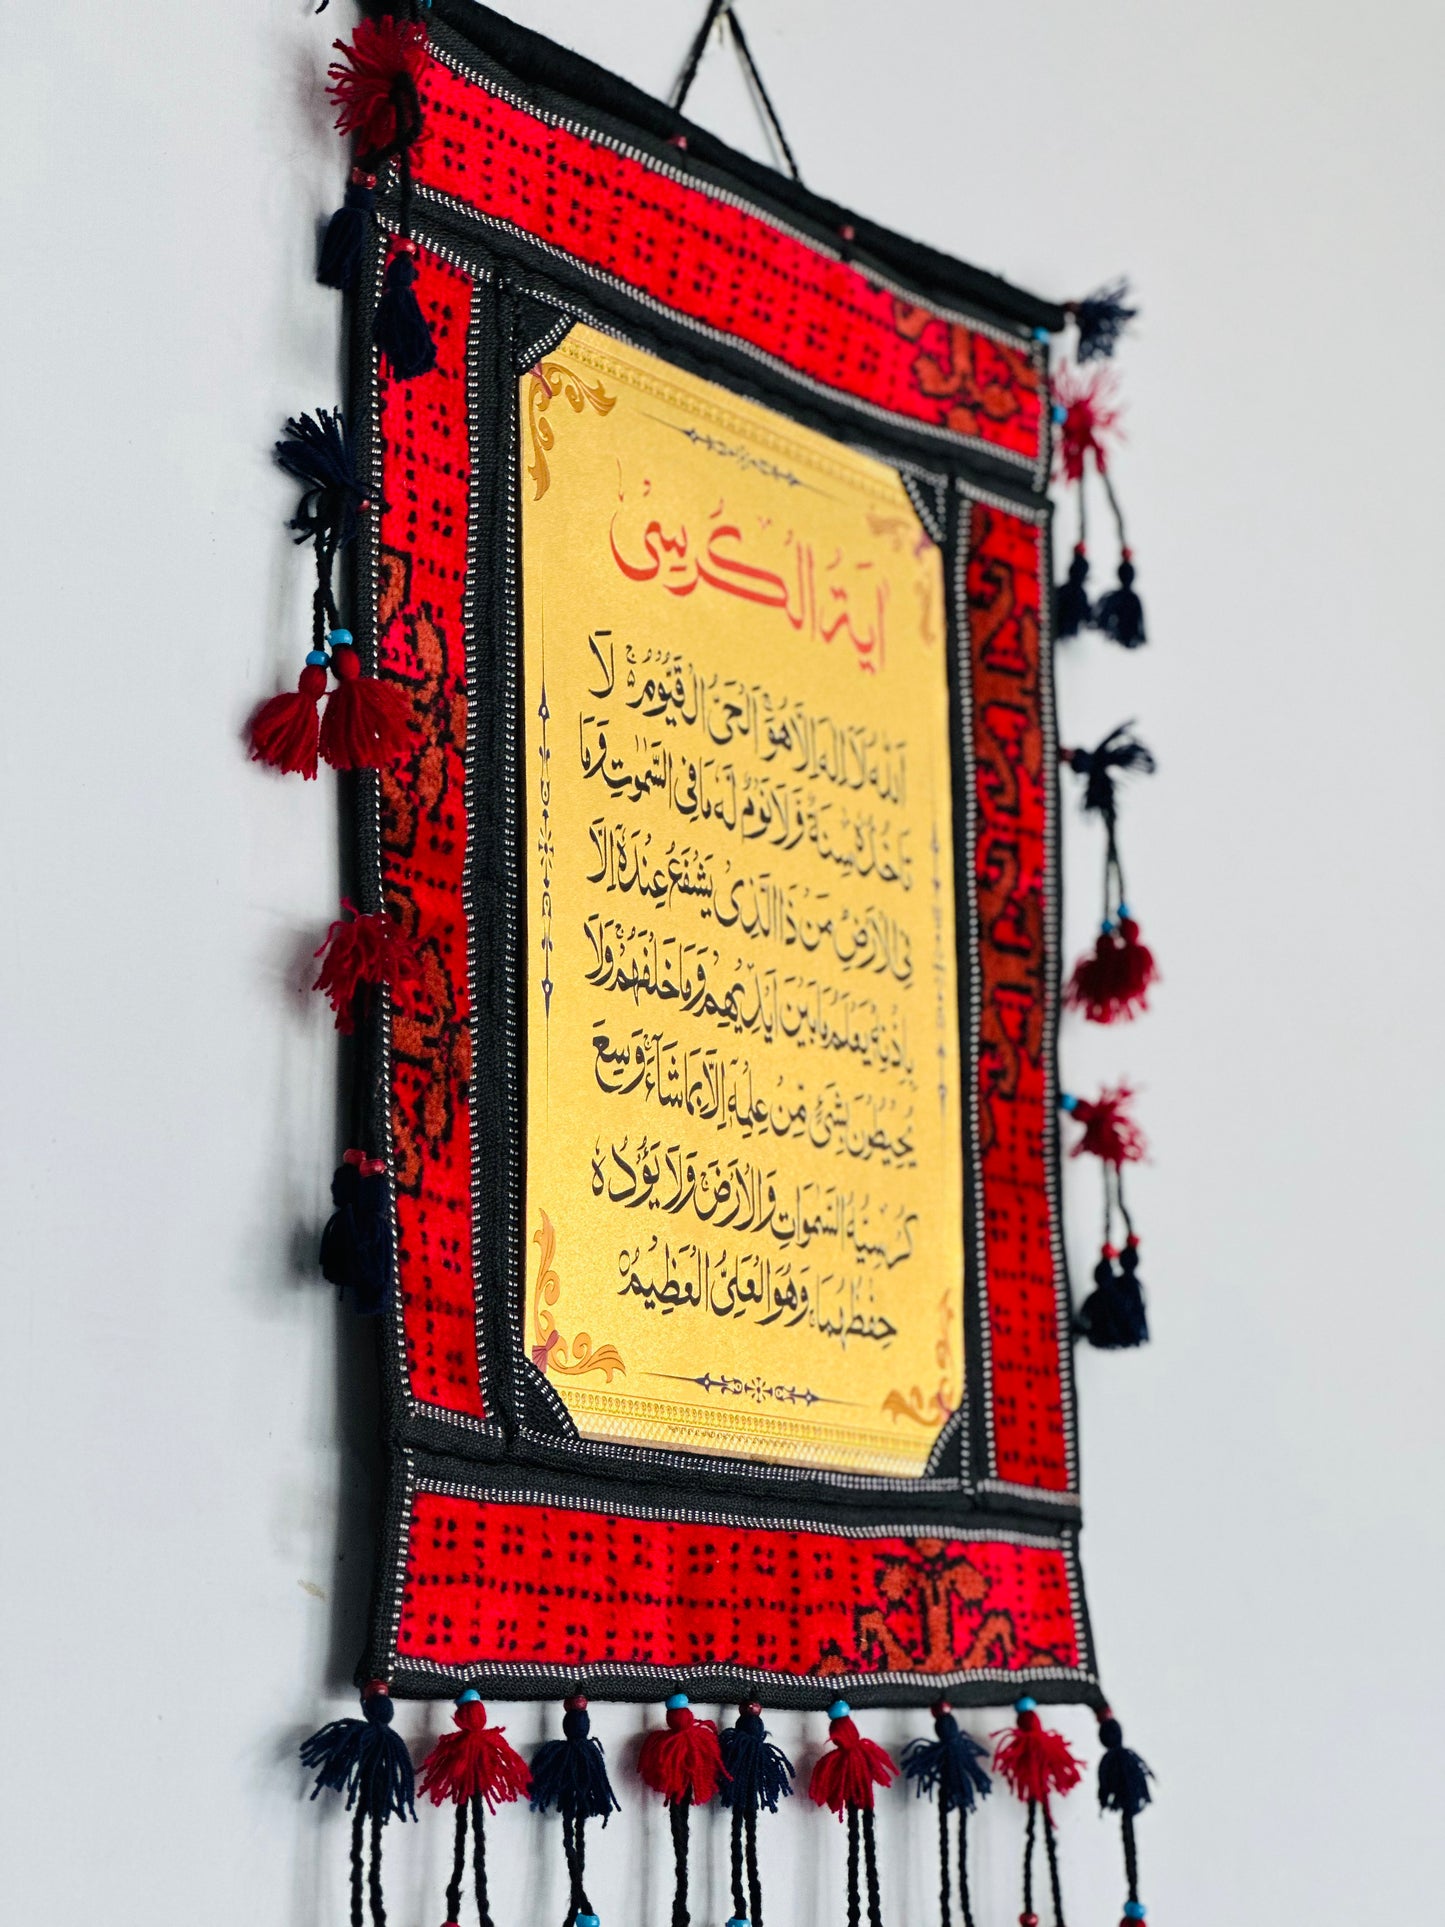 اٰيَةُ الْكُرْسِىْ
اَللّٰهُ لَاۤ اِلٰهَ اِلَّا هُوَ ۚ اَلْحَىُّ الْقَيُّوْمُ ۚ لَا
تَاْخُذُهٗ سِنَةٌ وَّلَا نَوْمٌ ؕ لَهٗ مَا فِى السَّمٰوٰتِ وَمَا
فِى الْاَرْضِ ؕ مَنْ ذَا الَّذِىْ يَشْفَعُ عِنْدَهٗۤ اِلَّا
بِاِذْنِهٖ ؕ يَعْلَمُ مَا بَيْنَ اَيْدِيْهِمْ وَمَا خَلْفَهُمْ ۚ وَلَا
يُحِيْطُوْنَ بِشَىْءٍ مِّنْ عِلْمِهٖۤ اِلَّا بِمَا شَآءَ ۚ وَسِعَ
كُرْسِيُّهُ السَّمٰوَاتِ وَالْاَرْضَ ۚ وَلَا يَـُٔوْدُهٗ
حِفْظُهُمَا ۚ وَهُوَ الْعَلِىُّ الْعَظِيْمُ